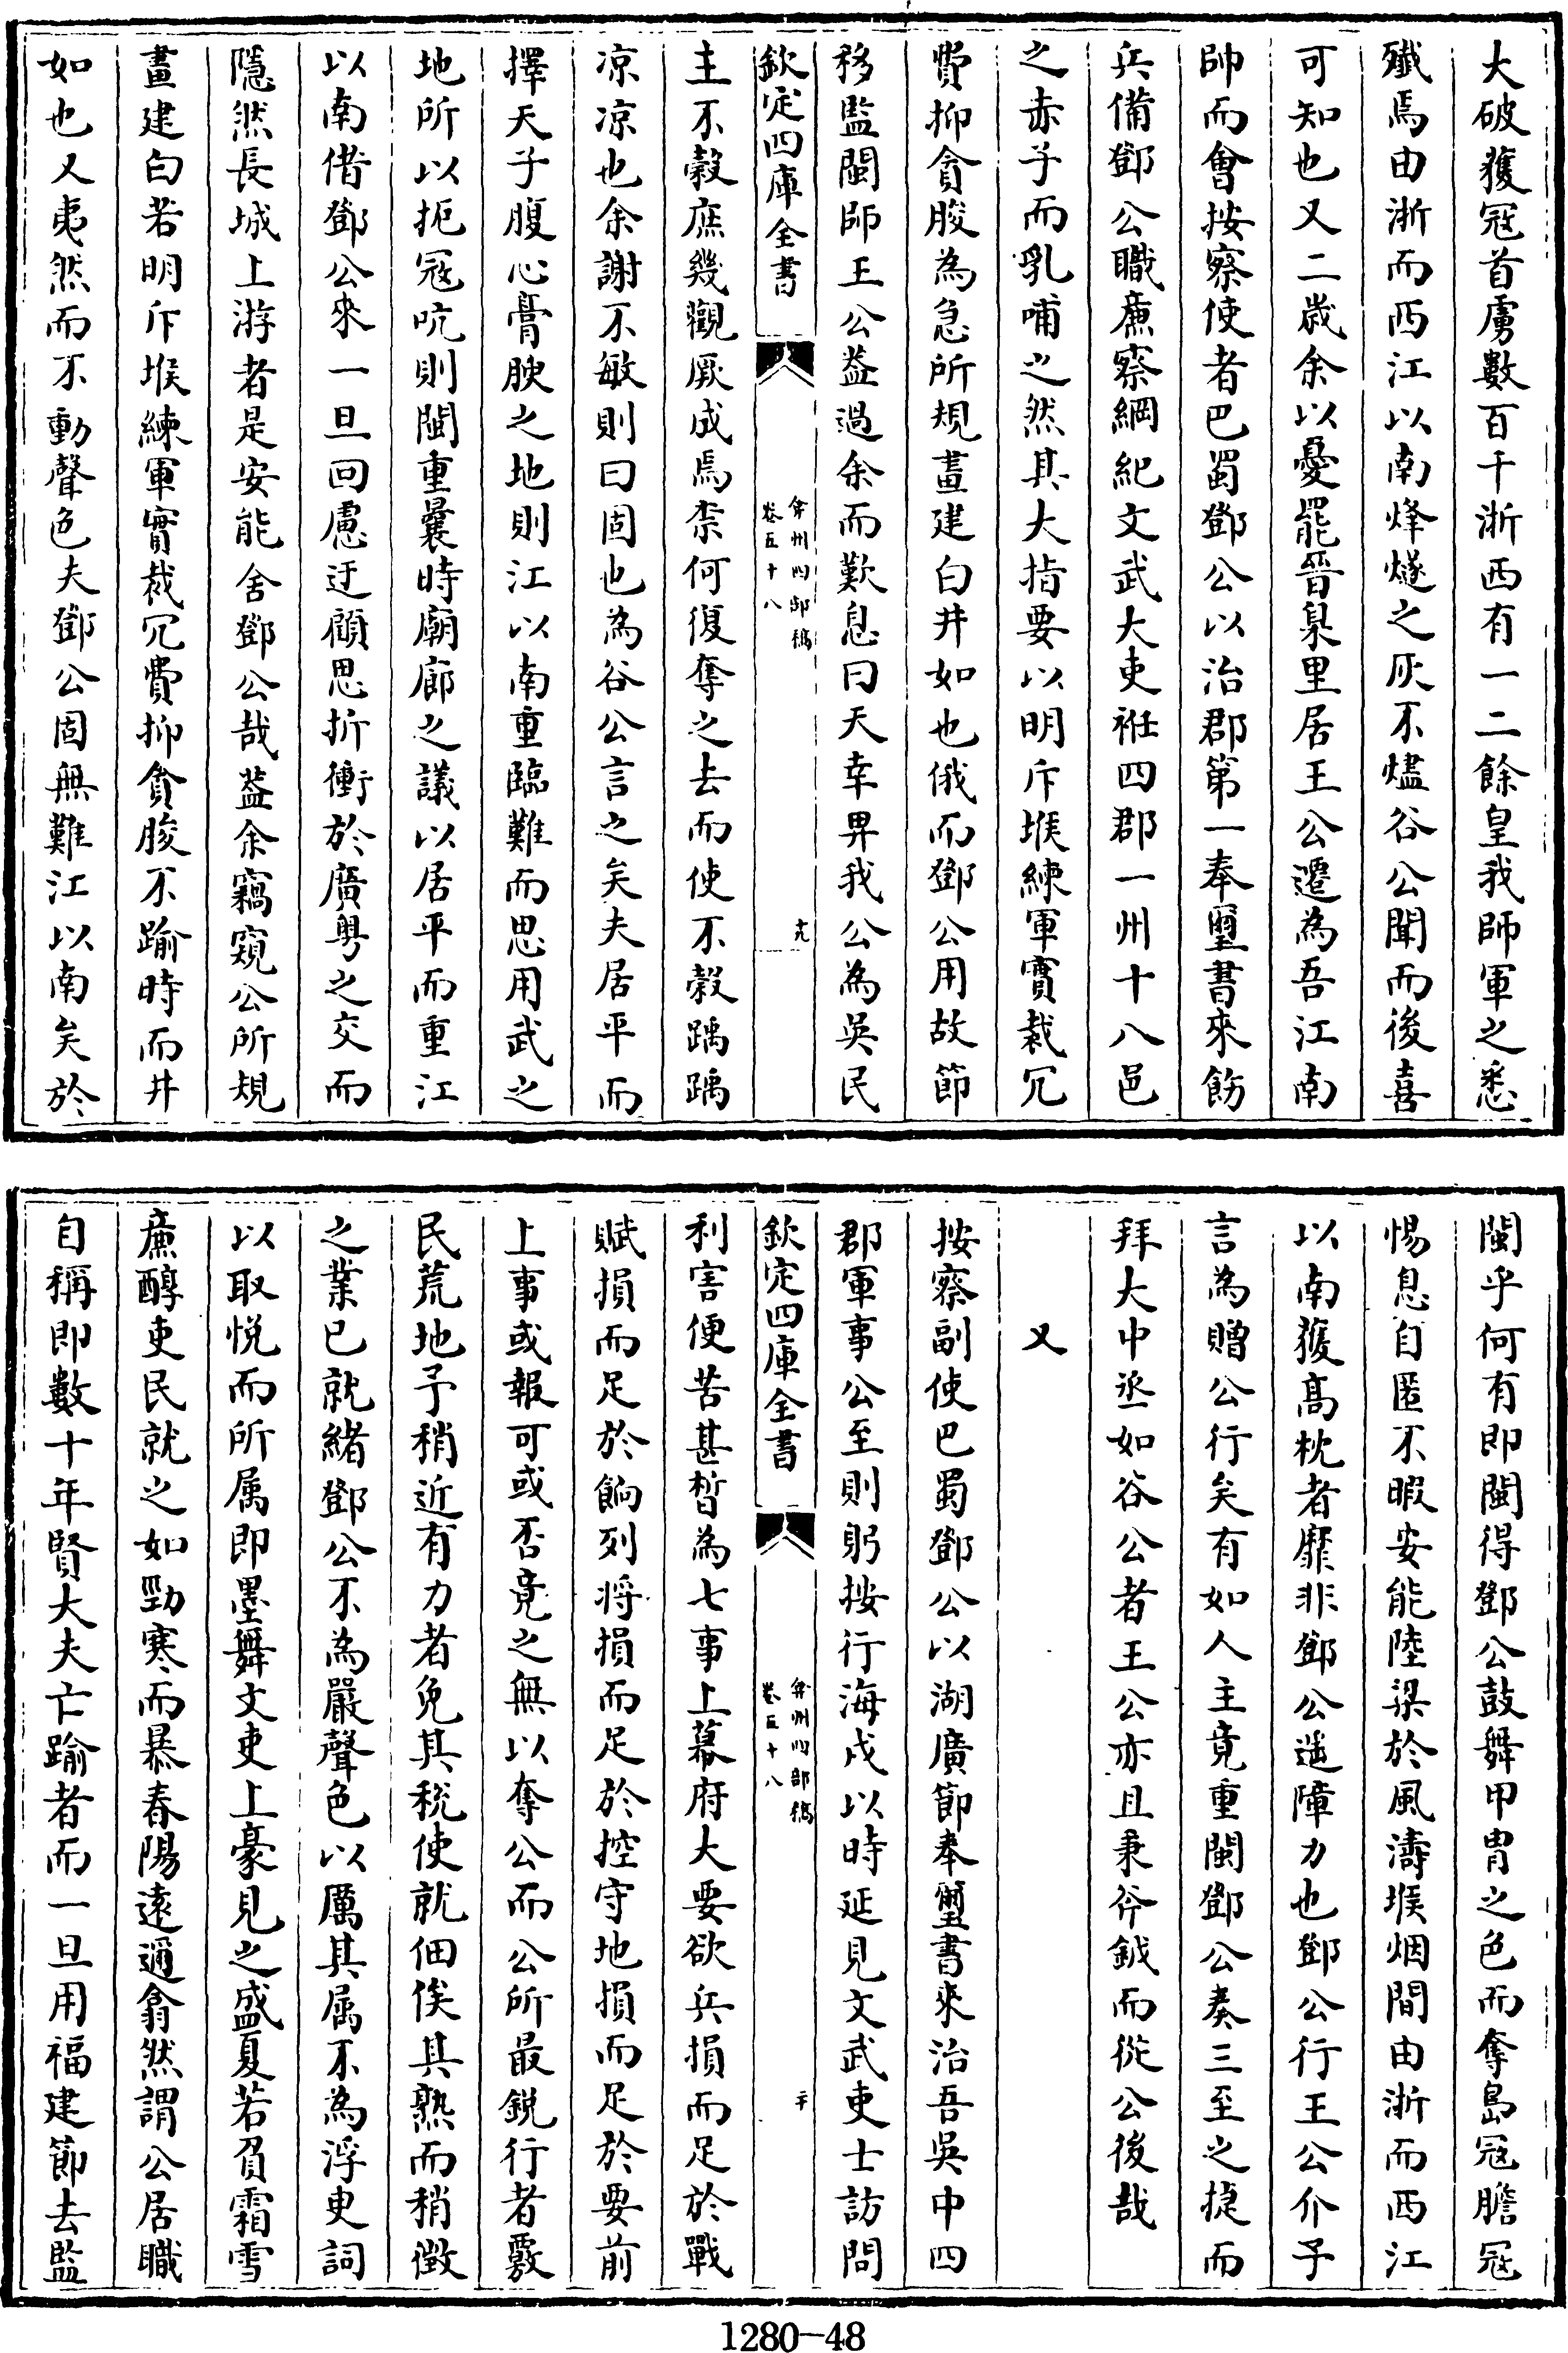 大破獲冦首虜數百千浙西有一二餘皇我師軍之悉
殲焉由浙而西江以南烽燧之灰不燼谷公聞而後喜
可知也又二歲余以憂罷晉臬里居王公遷為吾江南
帥而會按察使者巴蜀鄧公以治郡第一奉璽書來飭
兵備鄧公職亷察綱紀文武大吏袵四郡一州十八邑
之赤子而乳哺之然其大指要以明斥堠練軍實裁冗
費抑貪朘為急所規畫建白井如也俄而鄧公用故節
移監閩師王公葢過余而歎息曰天幸畀我公為吳民
欽定四庫全書
弇州四部稿
卷五十八
十九
主不穀庶幾觀厥成焉柰何復奪之去而使不穀踽踽
凉凉也余謝不敏則曰固也為谷公言之矣夫居平而
擇天子腹心膏腴之地則江以南重臨難而思用武之
地所以扼冦吭則閩重曩時廟廊之議以居平而重江
以南借鄧公來一旦回慮迂顧思折衝於廣粤之交而
隱然長城上游者是安能舍鄧公哉葢余竊窺公所規
畫建白若明斥堠練軍實裁冗費抑貪朘不踰時而井
如也又夷然而不動聲色夫鄧公固無難江以南矣於
閩乎何有即閩得鄧公鼓舞甲胄之色而奪島冦膽冦
惕息自匿不暇安能陸梁於風濤堠烟間由浙而西江
以南獲髙枕者靡非鄧公遮障力也鄧公行王公介予
言為贈公行矣有如人主竟重閩鄧公奏三至之捷而
拜大中丞如谷公者王公亦且秉斧鉞而從公後哉
又
按察副使巴蜀鄧公以湖廣節奉璽書來治吾吳中四
郡軍事公至則躬按行海戍以時延見文武吏士訪問
欽定四庫全書
弇州四部稿
卷五十八
二十
利害便苦甚晳為七事上幕府大要欲兵損而足於戰
賦損而足於餉列將損而足於控守地損而足於要前
上事或報可或否竟之無以奪公而公所最銳行者覈
民荒地予稍近有力者免其稅使就佃俟其熟而稍徴
之業已就緒鄧公不為嚴聲色以厲其属不為浮吏詞
以取悅而所属即墨舞文吏上豪見之盛夏若負霜雪
亷醇吏民就之如勁寒而暴春陽逺邇翕然謂公居職
自稱即數十年賢大夫亡踰者而一旦用福建節去監
1280-48